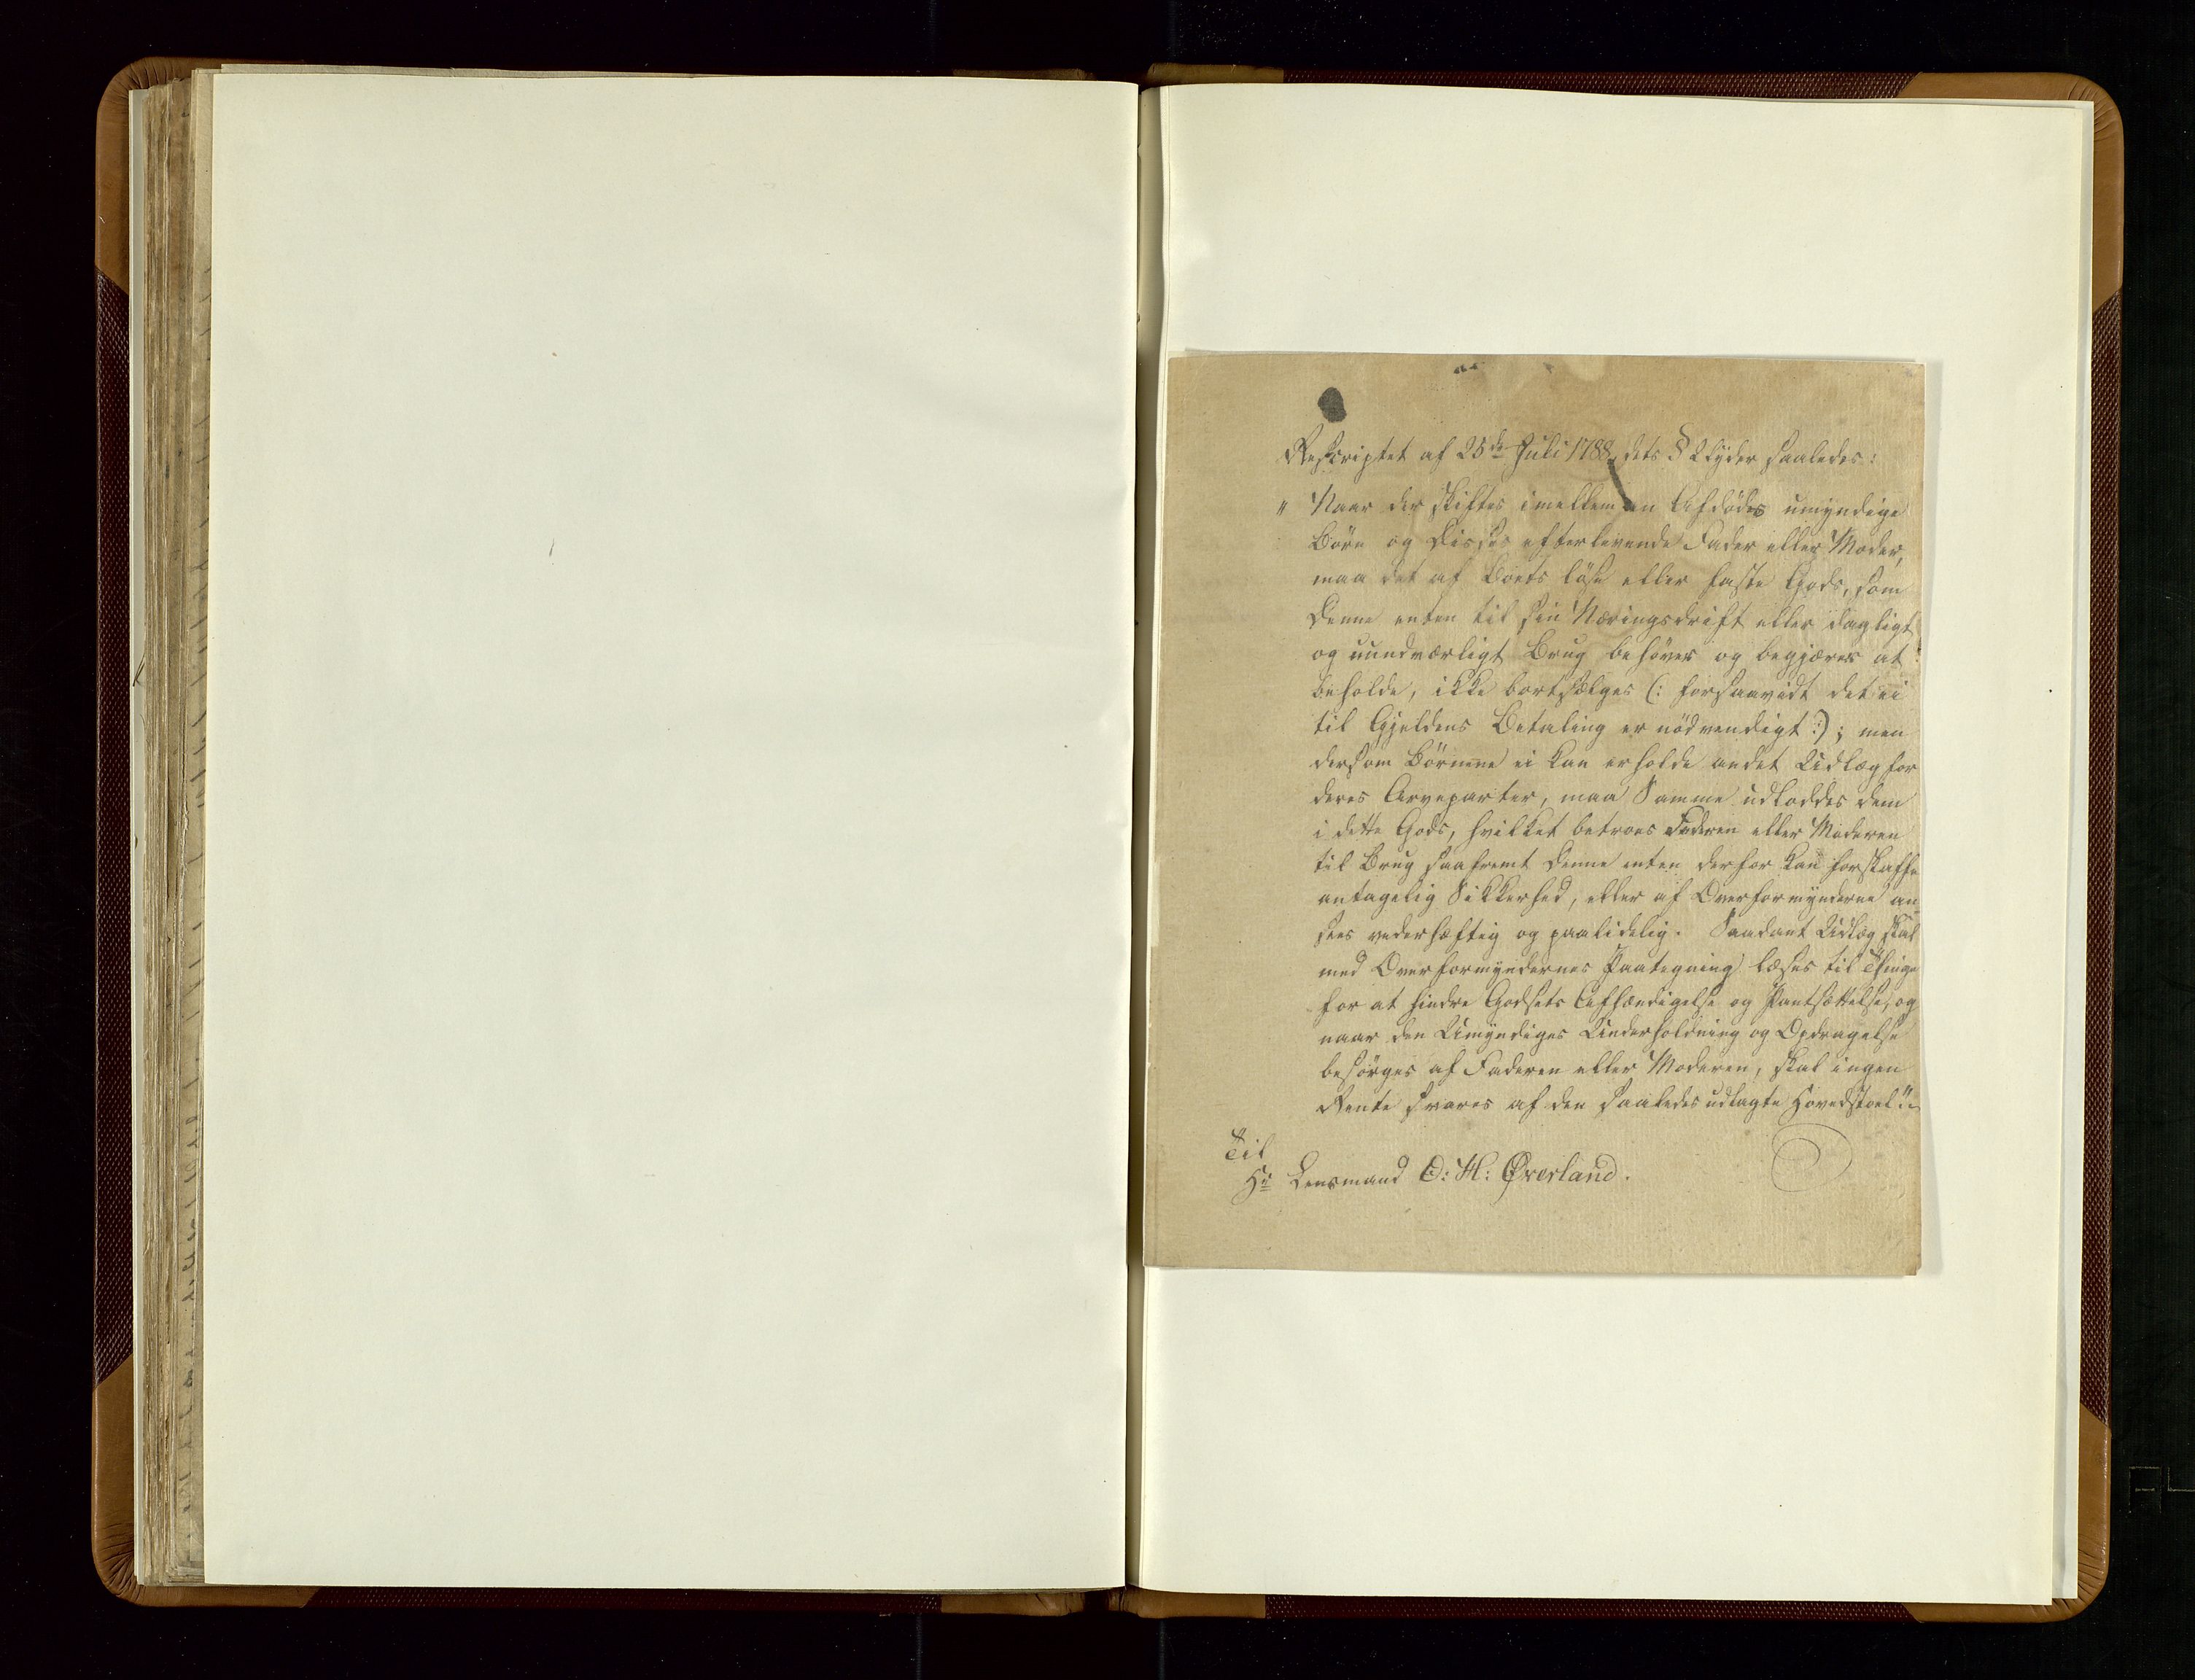 Reskriptet af 25de Juli 1788, dets § 2 lyder saaledes:
" Naar der skiftes imellem en Afdødes umyndige
Børn og disses efterlevende Fader eller Moder,
maa det af Boets løse eller faste Gods, som
denne enten til sin Næringsdrift eller dagligt
og uundværligt Brug behøver og begjærer at
beholde, ikke bortsælges (: forsaavidt det ei
til Gjeldens Betaling er nödvendigt :); men
dersom Börnene ei kan erholde andet Udlæg for
deres Arveparter, maa Samme udloddes dem
i dette Gods, hvilket betroes Faderen eller Moderen
til Brug saafremt denne enten derfor kan forskaffe
antagelig Sikkerhed, eller af Overformynderne an-
sees vederhæftig og paalidelig. Saadant Udlæg skal
med Overformyndernes Paategning læses til Thinge
for at hindre Godsets Afhændigelse og Pantsættelse, og
naar den Umyndiges Underholdning og Opdragelse
besörges af Faderen eller Moderen, skal ingen
Rente svares af den saaledes udlagte Hovedstoel."
Til
Hr Lensmand O: H: Øverland.